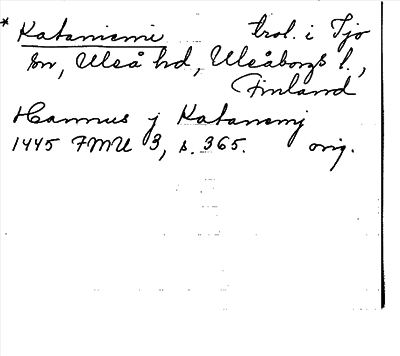 * Kataniemi trol. i Ijo
sn, Uleå hd, Uleåborgs l.,
Finland
Hannus j Katanemj
1445 FMU 3, s. 365. orig.